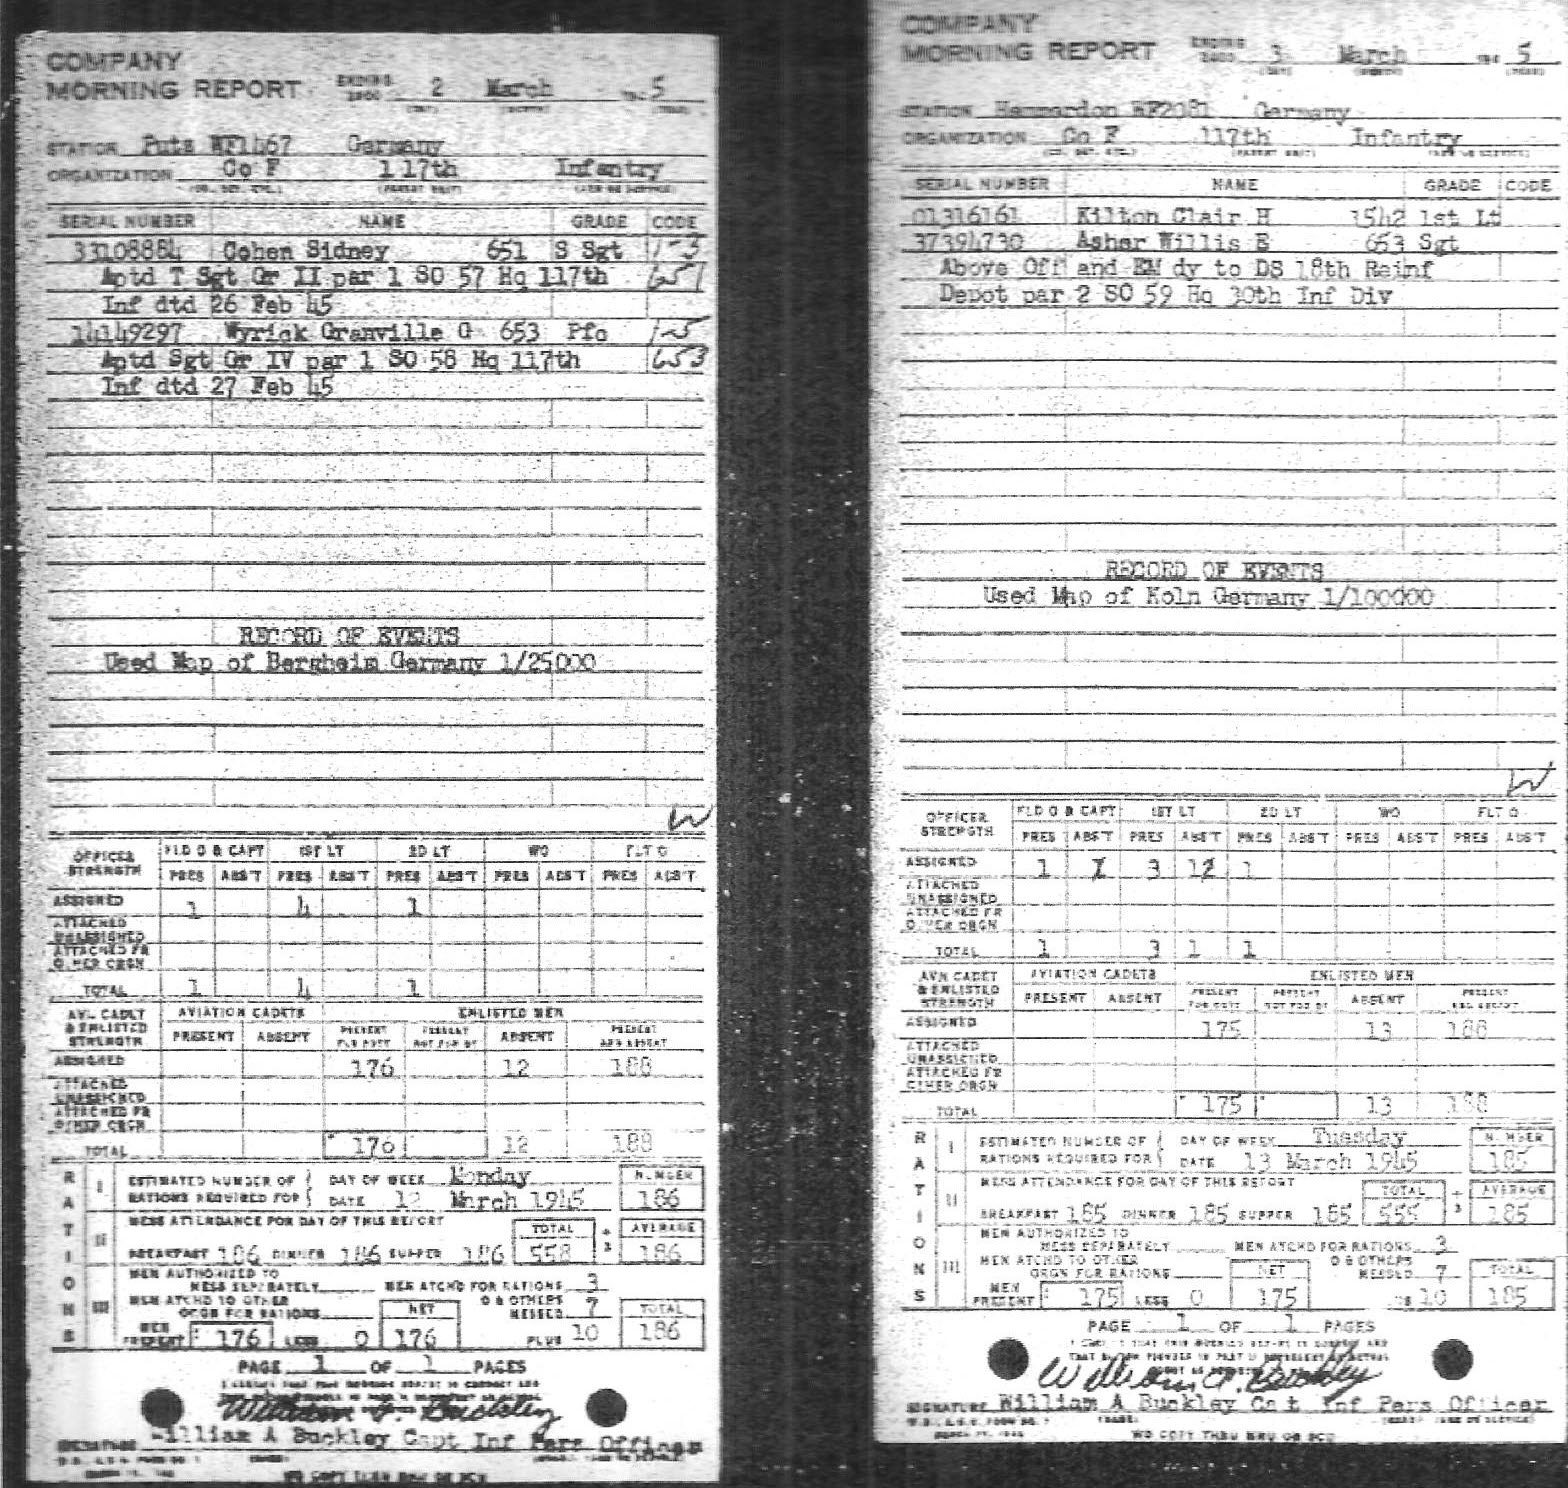 COMPANY
MORNING REPORT ENDING 2400 2 March 194 5
STATION Putz WF1467 Germany
ORGANIZATION Co F 117th Infantry
SERIAL NUMBER NAME GRADE CODE
33108884 Cohen Sidney 651 S Sgt 1-3
Aptd T Sgt Gr II par 1 SO 57 Hq 117th 651
Inf dtd 26 Feb 45
14149297 Wyrick Granville G 653 Pfc 1-5
Aptd Sgt Gr IV par 1 SO 58 Hq 117th 653
Inf dtd 27 Feb 45
RECORD OF EVENTS
Used Map of Bergheim Germany 1/25000
W
OFFICER STRENGTH FLD O & CAPT 1ST LT 2D LT WO FLT O
PRES ABS'T PRES ABS'T PRES ABS'T PRES ABS'T PRES ABS'T
ASSIGNED 1 4 1
ATTACHED UNASSIGNED
ATTACHED FR OTHER ORGN
TOTAL 1 4 1
AVN CADET & ENLISTED STRENGTH AVIATION CADETS ENLISTED MEN
PRESENT ABSENT PRESENT FOR DUTY PRESENT NOT FOR DY ABSENT PRESENT AND ABSENT
ASSIGNED 176 12 188
ATTACHED UNASSIGNED
ATTACHED FR OTHER ORGN
TOTAL 176 12 188
RATIONS
I ESTIMATED NUMBER OF RATIONS REQUIRED FOR DAY OF WEEK Monday NUMBER
DATE 12 March 1945 186
II MESS ATTENDANCE FOR DAY OF THIS REPORT TOTAL ÷ 3 AVERAGE
BREAKFAST 186 DINNER 186 SUPPER 186 558 186
III MEN AUTHORIZED TO MESS SEPARATELY MEN ATCHD FOR RATIONS 3
MEN ATCHD TO OTHER ORGN FOR RATIONS NET O & OTHERS MESSED 7 TOTAL
MEN PRESENT 176 LESS 0 176 PLUS 10 186
PAGE 1 OF 1 PAGES
I CERTIFY THAT THIS MORNING REPORT IS CORRECT AND
William A. Buckley
SIGNATURE William A Buckley Capt Inf Pers Officer
WD COPY THRU MRU OR SCU
COMPANY
MORNING REPORT ENDING 2400 3 March 194 5
STATION Hammerdon WF2081 Germany
ORGANIZATION Co F 117th Infantry
SERIAL NUMBER NAME GRADE CODE
01316161 Kilton Clair H 1542 1st Lt
37394730 Asher Willis E 653 Sgt
Above Off and EM dy to DS 18th Reinf
Depot par 2 SO 59 Hq 30th Inf Div
RECORD OF EVENTS
Used Map of Koln Germany 1/100000
W
OFFICER STRENGTH FLD O & CAPT 1ST LT 2D LT WO FLT O
PRES ABS'T PRES ABS'T PRES ABS'T PRES ABS'T PRES ABS'T
ASSIGNED 1 1 3 1 1
ATTACHED UNASSIGNED
ATTACHED FR OTHER ORGN
TOTAL 1 3 1 1
AVN CADET & ENLISTED STRENGTH AVIATION CADETS ENLISTED MEN
PRESENT ABSENT PRESENT FOR DUTY PRESENT NOT FOR DY ABSENT PRESENT AND ABSENT
ASSIGNED 175 13 188
ATTACHED UNASSIGNED
ATTACHED FR OTHER ORGN
TOTAL 175 13 188
RATIONS
I ESTIMATED NUMBER OF RATIONS REQUIRED FOR DAY OF WEEK Tuesday NUMBER
DATE 13 March 1945 185
II MESS ATTENDANCE FOR DAY OF THIS REPORT TOTAL ÷ 3 AVERAGE
BREAKFAST 185 DINNER 185 SUPPER 185 555 185
III MEN AUTHORIZED TO MESS SEPARATELY MEN ATCHD FOR RATIONS 3
MEN ATCHD TO OTHER ORGN FOR RATIONS NET O & OTHERS MESSED 7 TOTAL
MEN PRESENT 175 LESS 0 175 10 185
PAGE 1 OF 1 PAGES
I CERTIFY THAT THIS MORNING REPORT IS CORRECT AND
William A. Buckley
SIGNATURE William A Buckley Ca t Inf Pers Officer
WD COPY THRU MRU OR SCU